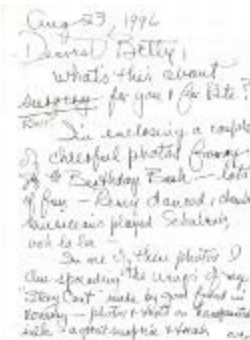 Aug 23, 1996
Dearest Betty,
What's this about
surgery for you & for Pete?
I'm enclosing a couple
of cheerful photos from
Birthday Bash — lots
of fun — danced,
musicians played Schubert,
ooh la la —
In one of these photos I
am spreading the wings of my
"Story Coat" made by good friend in
— photos & text on
silk — a great surprise &
over